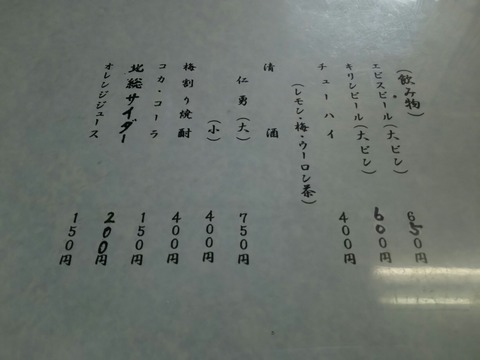 (飲み物)
エビスビール(大ビン) 650円
キリンビール(大ビン) 600円
チューハイ 400円
(レモン・梅・ウーロン茶)
清酒
仁勇(大) 750円
(小) 400円
梅割り焼酎 400円
コカ・コーラ 150円
北総サイダー 200円
オレンジジュース 150円